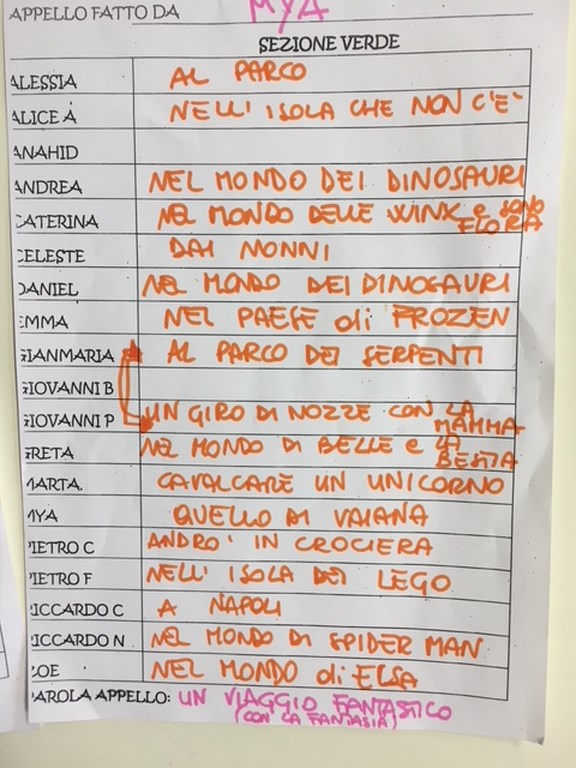 APPELLO FATTO DA MYA
SEZIONE VERDE
ALESSIA AL PARCO
ALICE A NELL' ISOLA CHE NON C'E'
ANAHID
ANDREA NEL MONDO DEI DINOSAURI
CATERINA NEL MONDO DELLE WINX e SONO FLORA
CELESTE DAI NONNI
DANIEL NEL MONDO DEI DINOSAURI
EMMA NEL PAESE di FROZEN
GIANMARIA AL PARCO DEI SERPENTI
GIOVANNI B
GIOVANNI P UN GIRO DI NOZZE CON LA MAMMA
GRETA NEL MONDO DI BELLE e LA BESTIA
MARTA. CAVALCARE UN UNICORNO
MYA QUELLO DI VAIANA
PIETRO C ANDRO' IN CROCIERA
PIETRO F NELL' ISOLA DEI LEGO
RICCARDO C A NAPOLI
RICCARDO N NEL MONDO DI SPIDER MAN
ZOE NEL MONDO di ELSA
PAROLA APPELLO: UN VIAGGIO FANTASTICO
(CON LA FANTASIA)